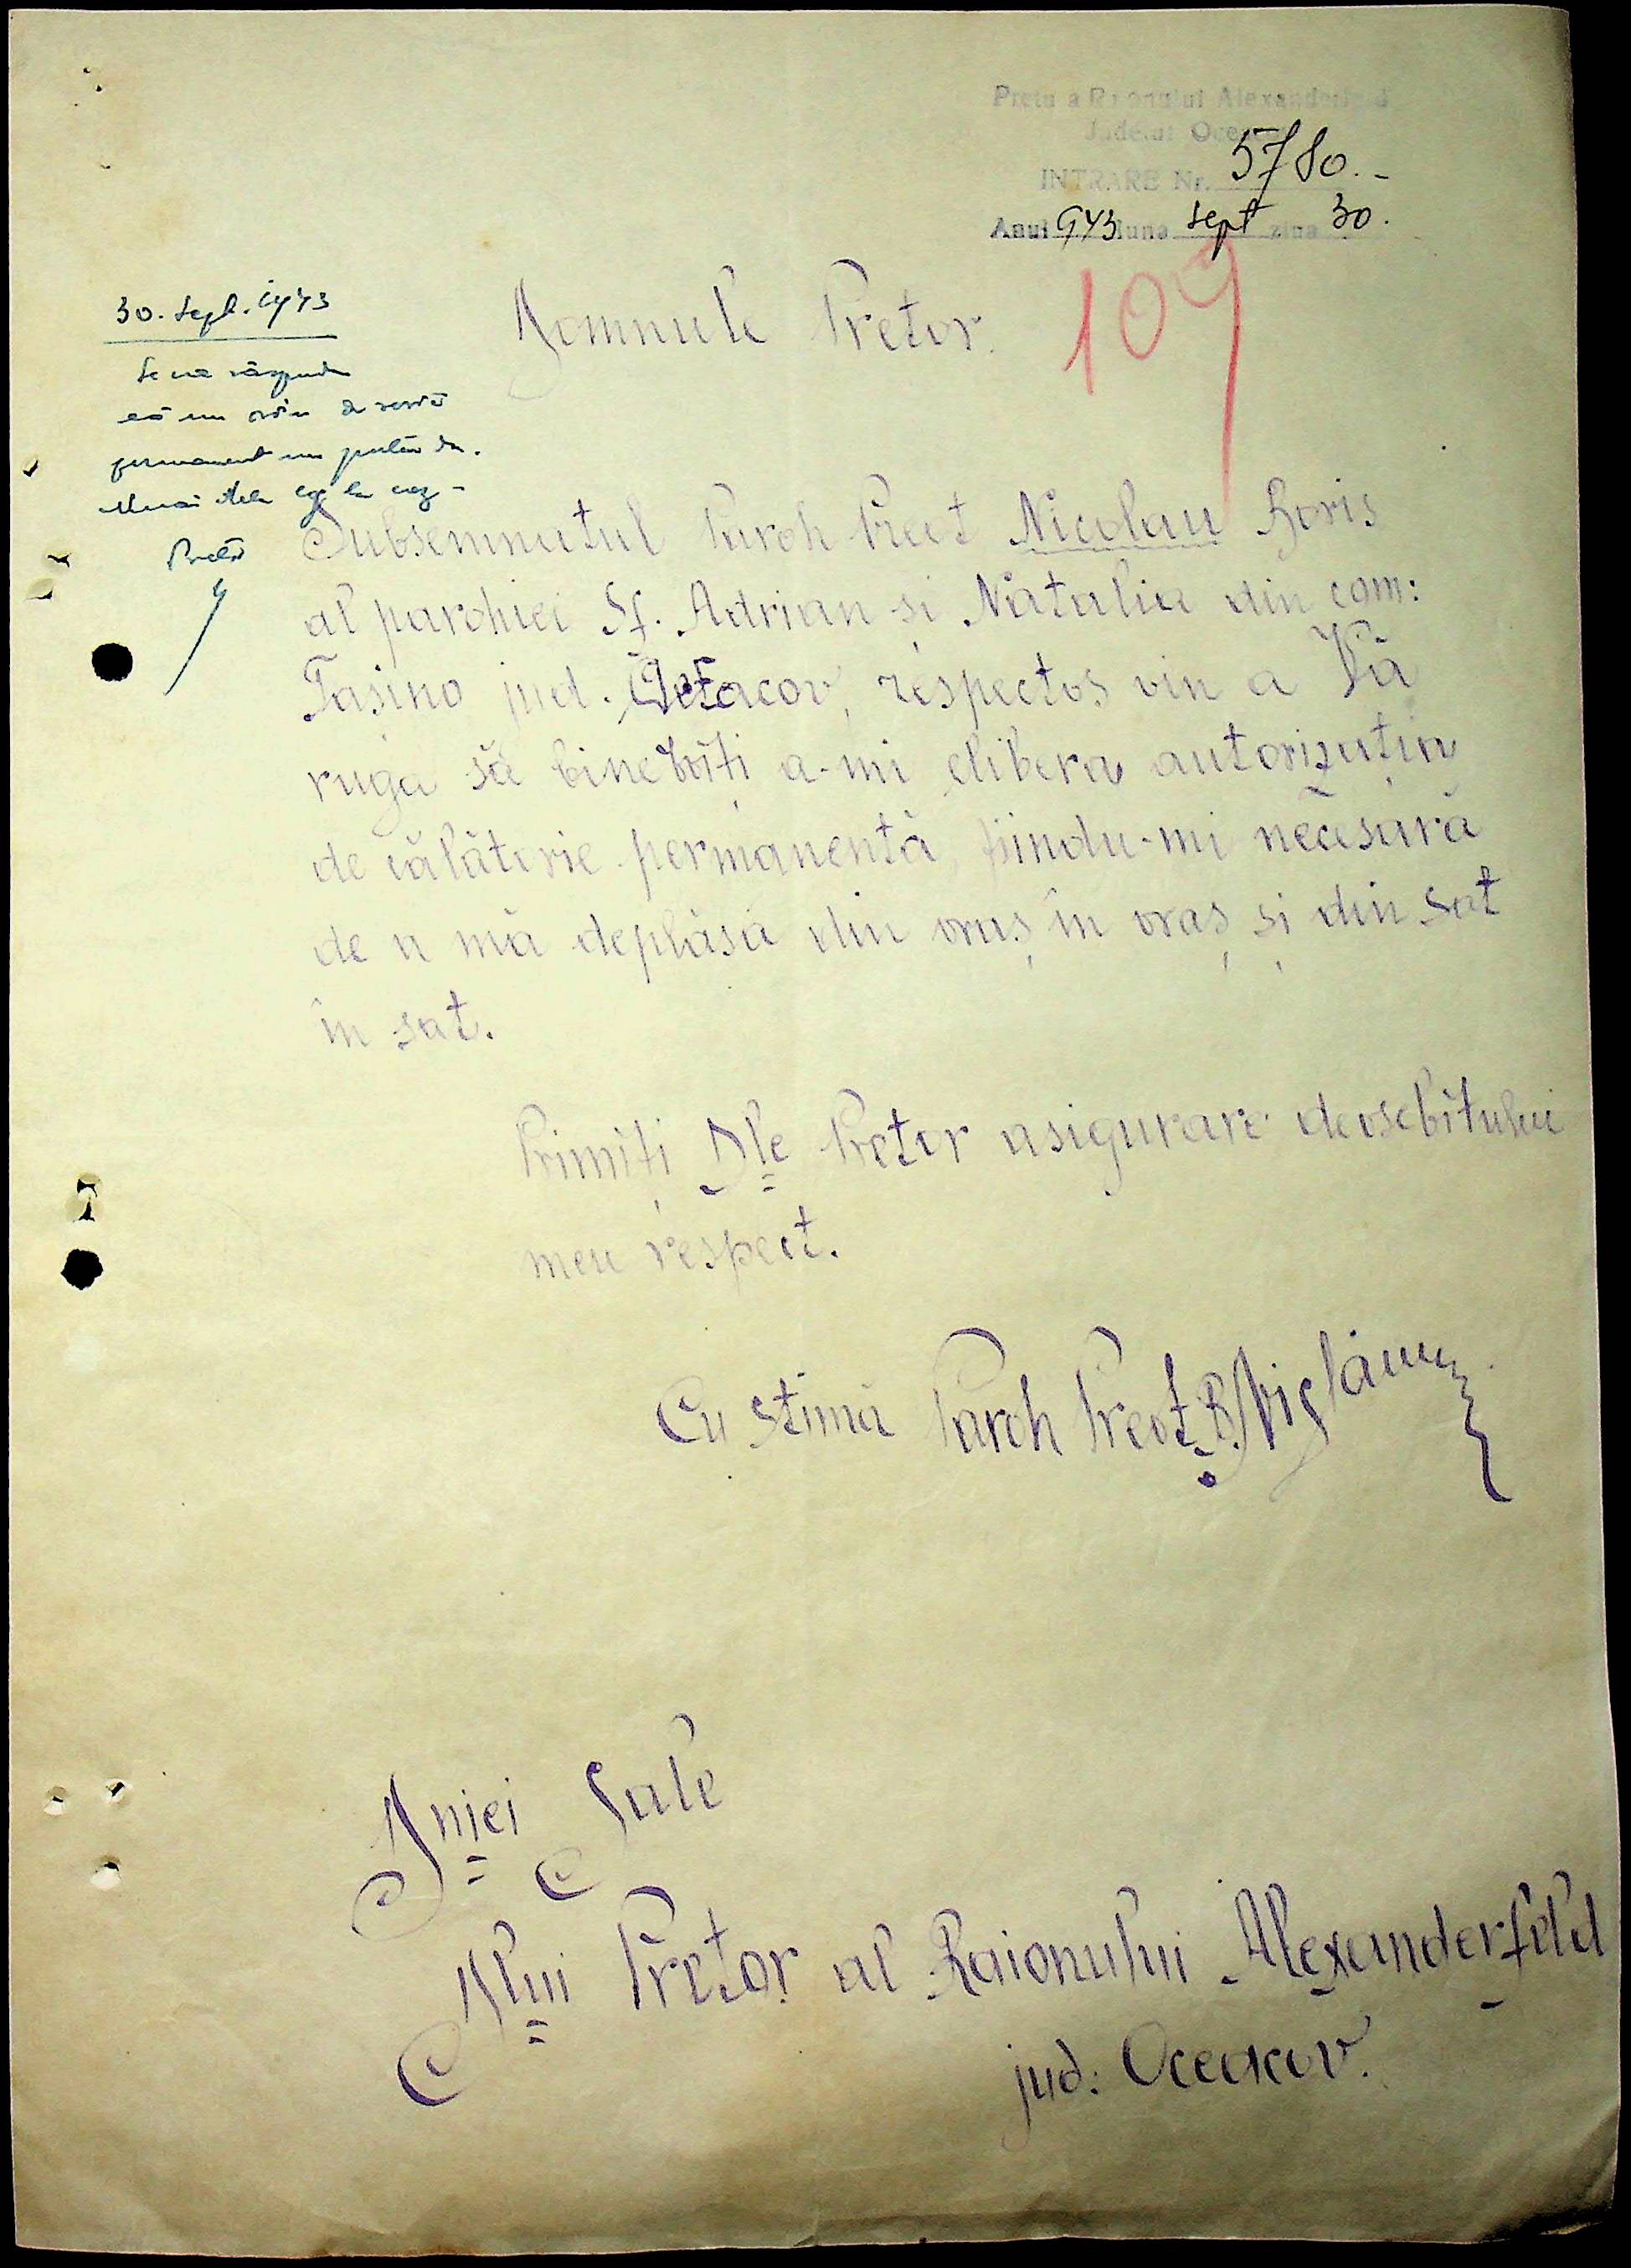 Pretura Raionului Alexanderfeld
Județul Oceacov
INTRARE Nr. 5780.-
Anul 943 luna Sept ziua 30.
109
30. Sept. 1943
Se va răspunde
că un ordin de
permanent nu putem da.
Numai dela caz la caz -
Pretor
Domnule Pretor.
Subsemnatul Paroh Preot Nicolau Boris
al parohiei Sf. Adrian si Natalia din com:
Tașino jud. Oceacov, respectos vin a Vă
ruga să binevoiți a-mi elibera autorizația
de călătorie permanentă, fiindu-mi necesară
de a mă deplăsa din oraș în oraș și din sat
în sat.
Primiți Dle Pretor asigurare deosebitului
meu respect.
Cu stimă Paroh Preot B. Nicolau
Dniei Sale
Dlui Pretor al Raionului Alexanderfeld
jud: Oceacov.